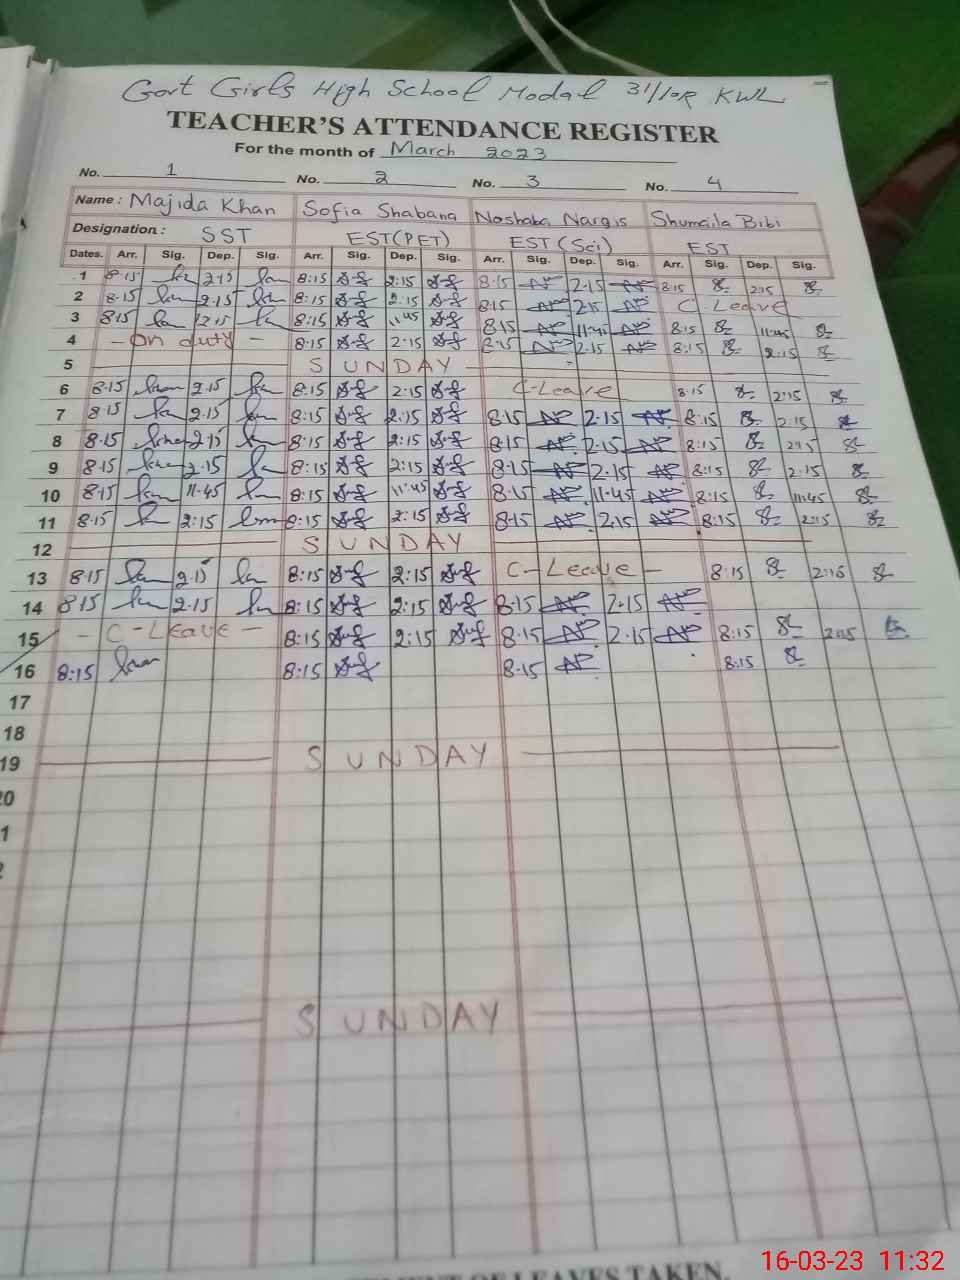 Govt Girls High School Modal 31/10R KWL
TEACHER'S ATTENDANCE REGISTER
For the month of March 2023
No. 1 No. 2 No. 3 No. 4
Name: Majida Khan Sofia Shabana Noshaba Nargis Shumaila Bibi
Designation: SST EST(PET) EST(Sci) EST
Dates. Arr. Sig. Dep. Sig. Arr. Sig. Dep. Sig. Arr. Sig. Dep. Sig. Arr. Sig. Dep. Sig.
1 8.15 2.15 8:15 2:15 8.15 2.15 8.15 2:15
2 8.15 2.15 8:15 2.15 8.15 2.15 C Leave
3 8.15 12.15 8:15 11.45 8.15 11.45 8.15 11.45
4 - on duty - 8:15 2.15 8.15 2.15 8.15 2.15
5 SUNDAY
6 8.15 2.15 8:15 2.15 C-Leave 8.15 2.15
7 8.15 2.15 8:15 2:15 8.15 2.15 8:15 2.15
8 8.15 2.15 8:15 2:15 8.15 2.15 8:15 2.15
9 8.15 2.15 8:15 2:15 8.15 2.15 8:15 2.15
10 8.15 11.45 8:15 11.45 8.15 11.45 8:15 11.45
11 8.15 2:15 8:15 2:15 8.15 2.15 8:15 2:15
12 SUNDAY
13 8.15 2.15 8:15 2:15 C-Leave - 8:15 2:15
14 8.15 2.15 8:15 2:15 8.15 2.15
15 - C-Leave - 8:15 2:15 8.15 2.15 8:15 2:15
16 8:15 8:15 8.15 8:15
17
18
19 SUNDAY
20
1
2
SUNDAY
OF LEAVES TAKEN.
16-03-23 11:32